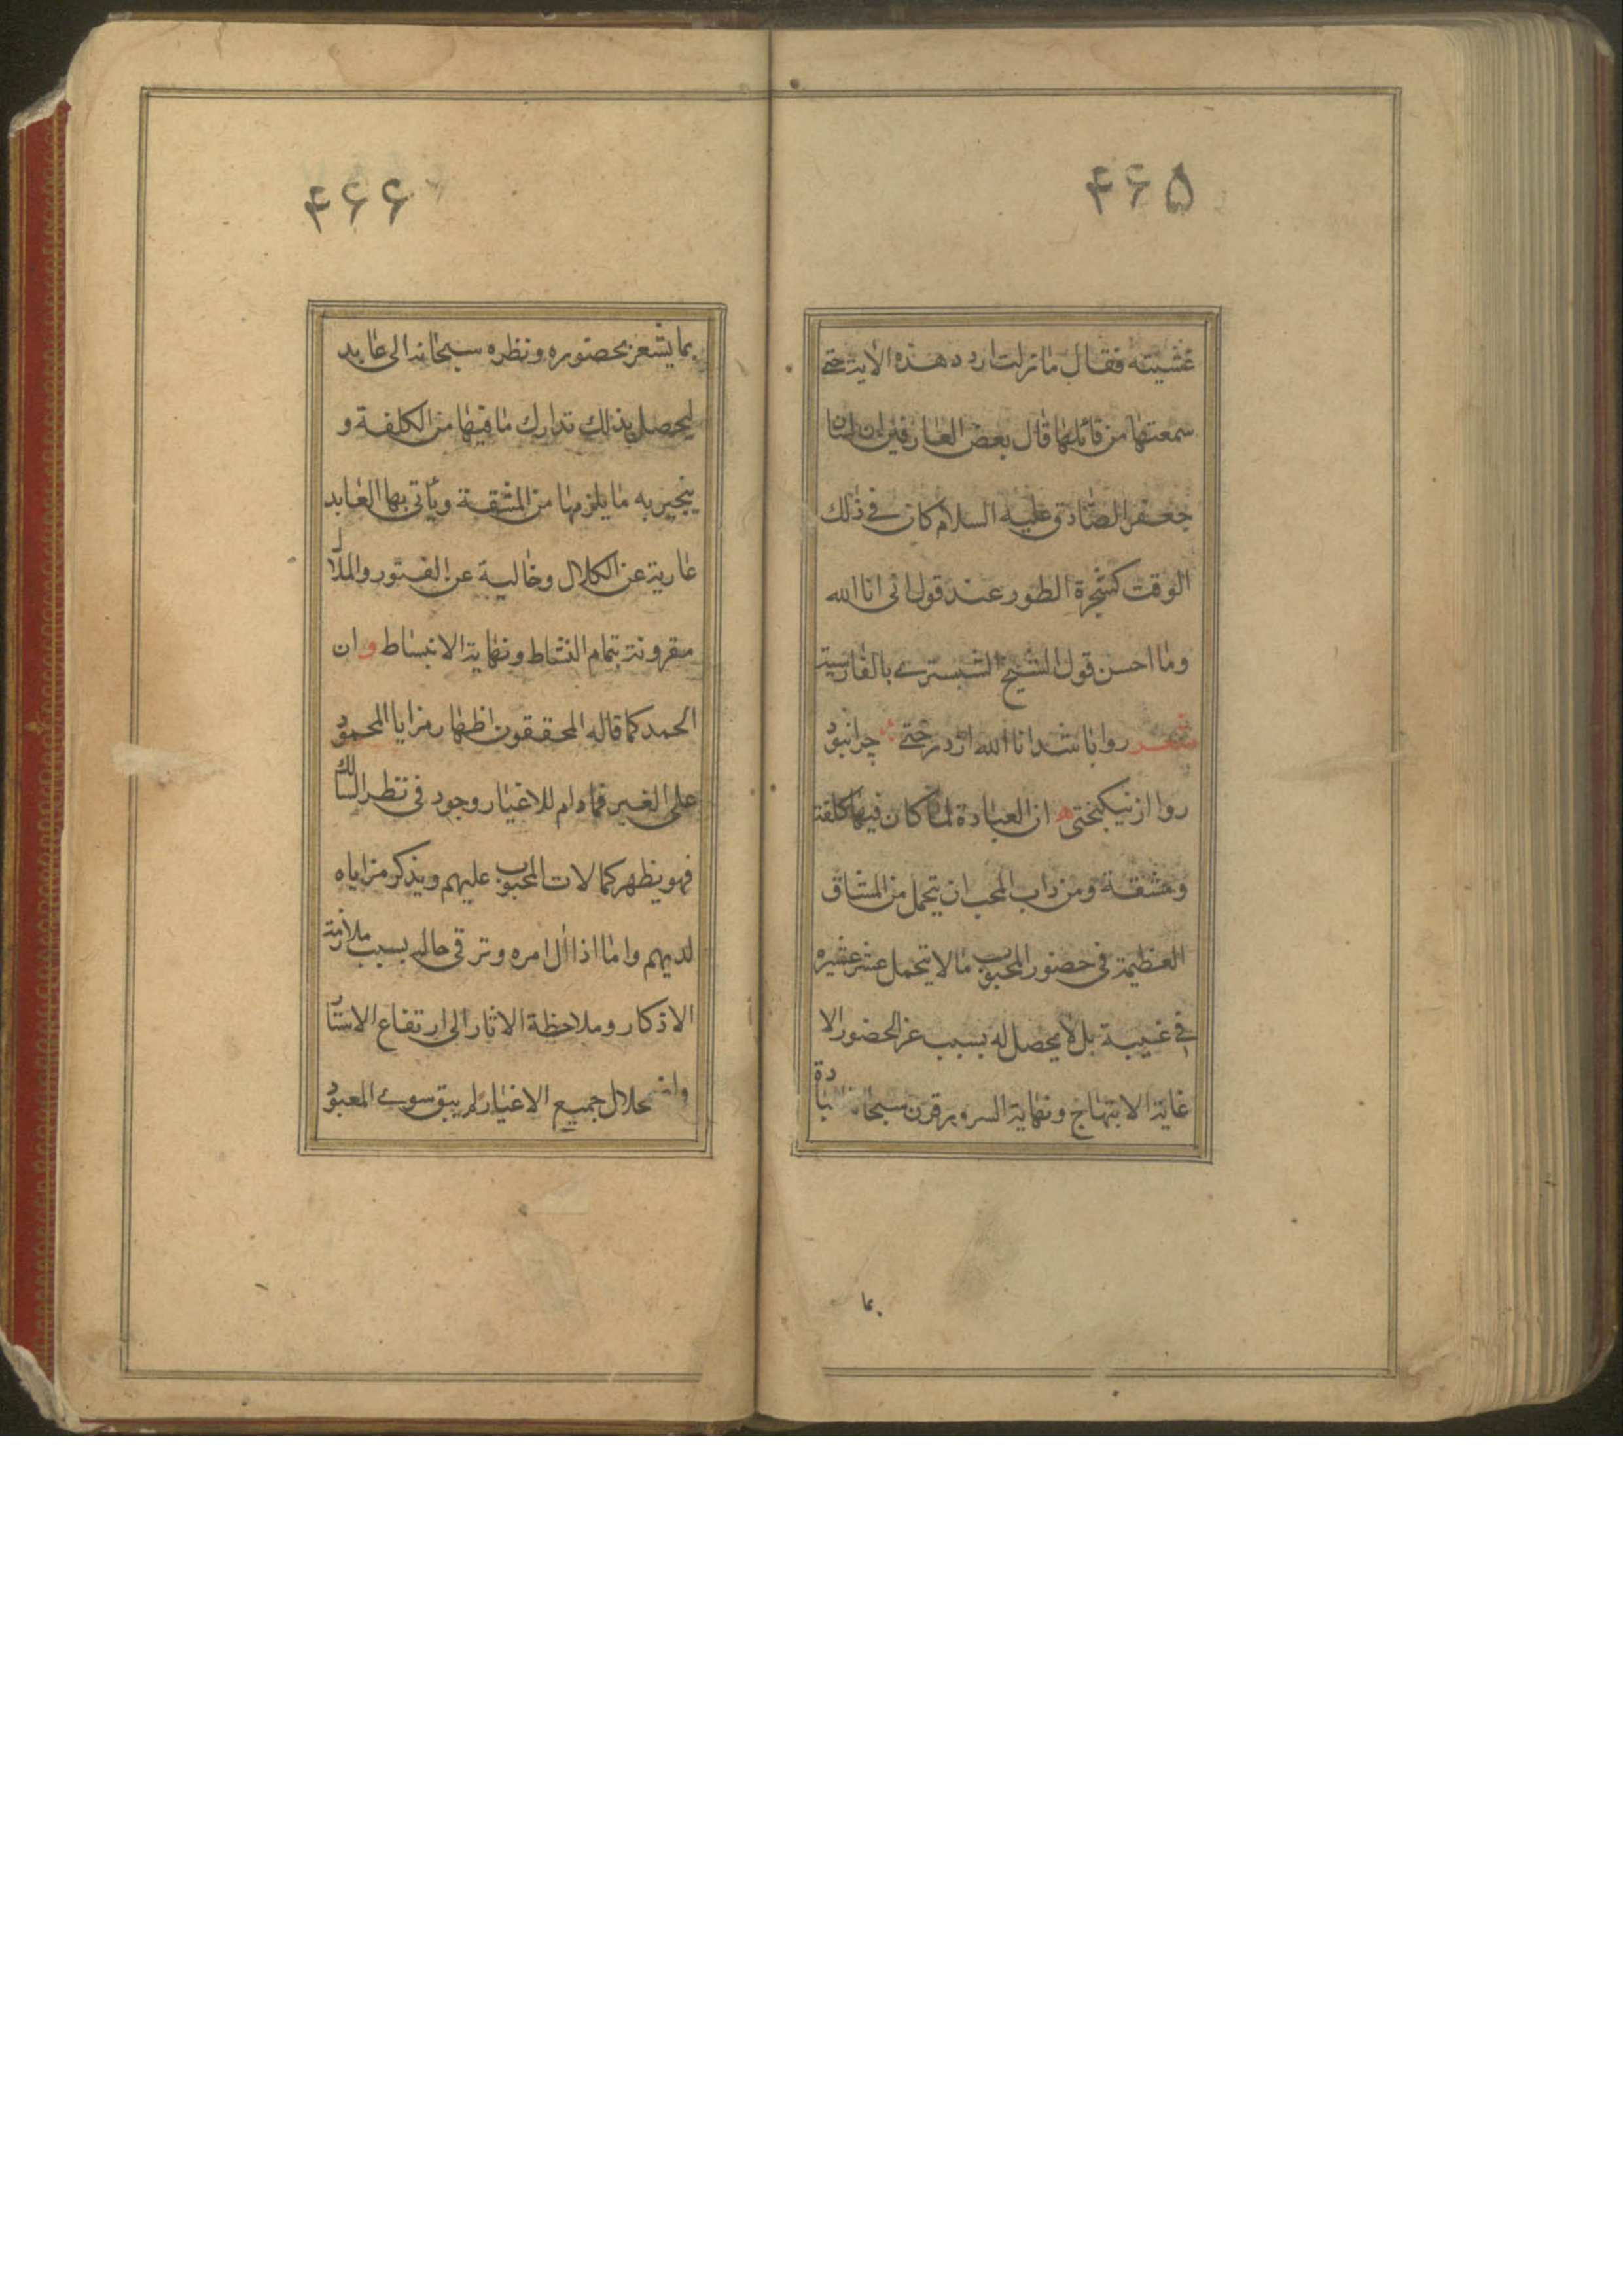 ۴۶۵
غشيته فقال ما زلت اردد هذه الاية حتى
سمعتها من قائلها قال بعض العارفين ان لسان
جعفر الصادق عليه السلام كان في ذلك
الوقت كشجرة الطور عند قول انى انا الله
وما احسن قول الشيخ الشبسترے بالفارسية
شعر روا باشد انا الله از درختے چرا نبود
روا از نيكبختى ان العبادة لما كان فيها كلفة
ومشقة ومن داب المحب ان يتحمل من المشاق
العظيمة في حضور المحبوب ما لا يتحمل عشر عشيره
في غيبة بل لا يحصل له بسبب عز الحضور الا
غاية الابتهاج ونهاية السرور قرن سبحانه العبادة
بما
۴۶۶
بما يشعر بحضوره ونظره سبحانه الى عابديه
ليحصل بذلك تدارك ما فيها من الكلفة و
ينجبر به ما يلزمها من المشقة وياتى بها العابد
عارية عن الكلال وخالية عن الفتور والملال
مقرونة بتمام النشاط ونهاية الانبساط و ان
الحمد كما قاله المحققون اظهار مزايا المحمود
على الغير فما دام للاغيار وجود في نظر السالك
فهو يظهر كمالات المحبوب عليهم ويذكر مزاياه
لديهم واما اذا ال امره وترقى حاله بسبب ملازمة
الاذكار وملاحظة الاثار الى ارتفاع الاستار
واضمحلال جميع الاغيار لم يبق سوے المعبود